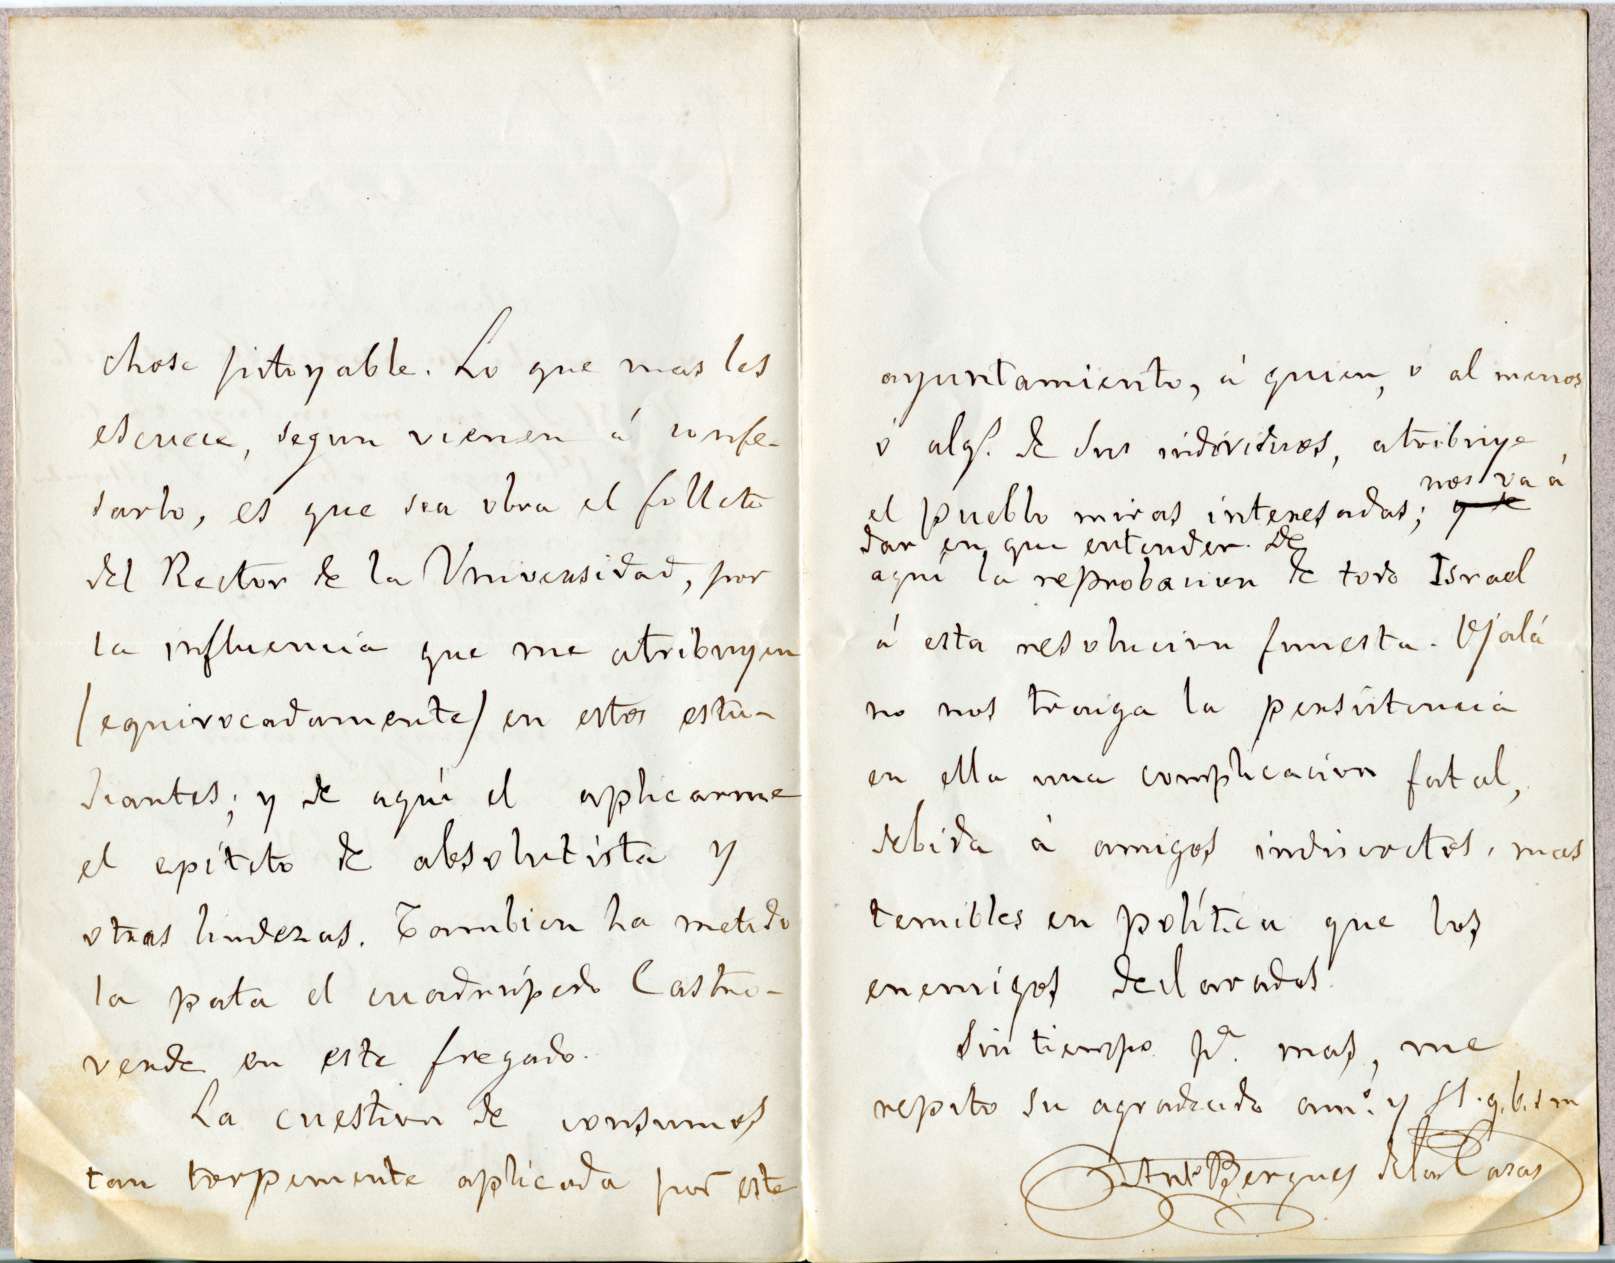 chose pitoyable. Lo que mas les
escuece, segun vienen á confe-
sarlo, es que sea obra el folleto
del Rector de la Universidad, por
la influencia que me atribuyen
(equivocadamente) en estos estu-
diantes; y de aquí el aplicarme
el epíteto de absolutista y
otras lindezas. Tambien ha metido
la pata el cuadrúpedo Castro-
verde en este fregado.
La cuestion de consumos
tan torpemente aplicada por este
ayuntamiento, á quien, ó al menos
ó alg.s de sus individuos, atribuye
nos va á
el pueblo miras interesadas; q se
dar en que entender. De
aquí la reprobacion de todo Israel
á esta resolucion funesta. Ojalá
no nos traiga la persistencia
en ella una complicacion fatal,
debida á amigos indiscretos, mas
temibles en política que los
enemigos declarados.
Sin tiempo p.a mas, me
repito su agradecido am.o y SS. q. b. s m
Ant.o Bergnes de las Casas